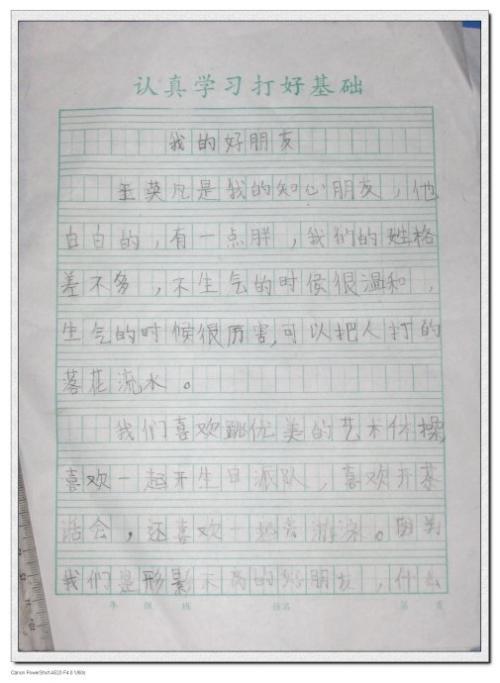 认真学习打好基础
我的好朋友
王英凡是我的知心朋友，他
白白的，有一点胖，我们的姓格
差不多，不生气的时候很温和，
生气的时候很厉害，可以把人打的
落花流水。
我们喜欢跳优美的艺术体操，
喜欢一起开生日派队，喜欢开茶
话会，还喜欢一起去游泳。因为
我们是形影不离的好朋友，什么
年级 班 姓名 第 页
Canon PowerShot A620 F4.0 1/60s